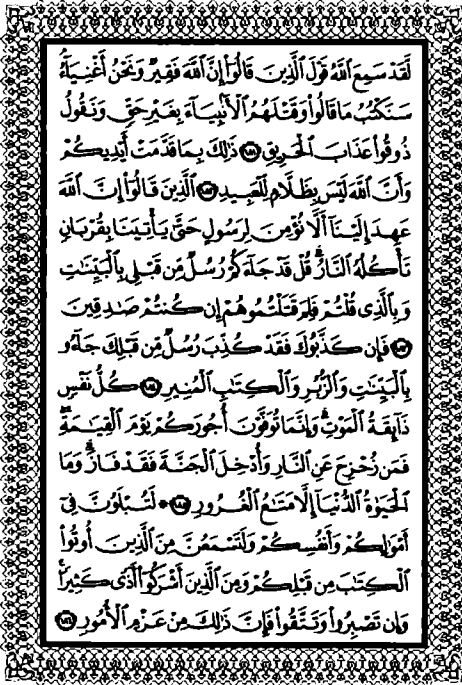 لَّقَدْ سَمِعَ ٱللَّهُ قَوْلَ ٱلَّذِينَ قَالُوٓا۟ إِنَّ ٱللَّهَ فَقِيرٌ وَنَحْنُ أَغْنِيَآءُ
سَنَكْتُبُ مَا قَالُوا۟ وَقَتْلَهُمُ ٱلْأَنۢبِيَآءَ بِغَيْرِ حَقٍّ وَنَقُولُ
ذُوقُوا۟ عَذَابَ ٱلْحَرِيقِ ١٨١ ذَٰلِكَ بِمَا قَدَّمَتْ أَيْدِيكُمْ
وَأَنَّ ٱللَّهَ لَيْسَ بِظَلَّامٍ لِّلْعَبِيدِ ١٨٢ ٱلَّذِينَ قَالُوٓا۟ إِنَّ ٱللَّهَ
عَهِدَ إِلَيْنَآ أَلَّا نُؤْمِنَ لِرَسُولٍ حَتَّىٰ يَأْتِيَنَا بِقُرْبَانٍ
تَأْكُلُهُ ٱلنَّارُ ۗ قُلْ قَدْ جَآءَكُمْ رُسُلٌ مِّن قَبْلِى بِٱلْبَيِّنَٰتِ
وَبِٱلَّذِى قُلْتُمْ فَلِمَ قَتَلْتُمُوهُمْ إِن كُنتُمْ صَٰدِقِينَ
١٨٣ فَإِن كَذَّبُوكَ فَقَدْ كُذِّبَ رُسُلٌ مِّن قَبْلِكَ جَآءُو
بِٱلْبَيِّنَٰتِ وَٱلزُّبُرِ وَٱلْكِتَٰبِ ٱلْمُنِيرِ ١٨٤ كُلُّ نَفْسٍ
ذَآئِقَةُ ٱلْمَوْتِ ۗ وَإِنَّمَا تُوَفَّوْنَ أُجُورَكُمْ يَوْمَ ٱلْقِيَٰمَةِ ۖ
فَمَن زُحْزِحَ عَنِ ٱلنَّارِ وَأُدْخِلَ ٱلْجَنَّةَ فَقَدْ فَازَ ۗ وَمَا
ٱلْحَيَوٰةُ ٱلدُّنْيَآ إِلَّا مَتَٰعُ ٱلْغُرُورِ ١٨٥ ۞ لَتُبْلَوُنَّ فِىٓ
أَمْوَٰلِكُمْ وَأَنفُسِكُمْ وَلَتَسْمَعُنَّ مِنَ ٱلَّذِينَ أُوتُوا۟
ٱلْكِتَٰبَ مِن قَبْلِكُمْ وَمِنَ ٱلَّذِينَ أَشْرَكُوٓا۟ أَذًى كَثِيرًا ۚ
وَإِن تَصْبِرُوا۟ وَتَتَّقُوا۟ فَإِنَّ ذَٰلِكَ مِنْ عَزْمِ ٱلْأُمُورِ ١٨٦